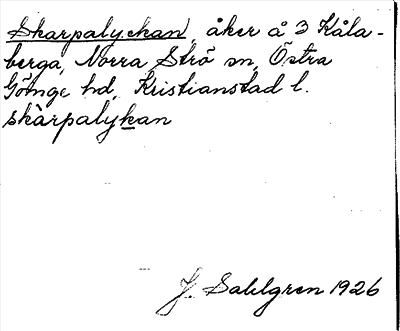 Skarpalyckan, åker å 3 Kåla-
berga, Norra Strö sn, Östra
Göinge hd, Kristianstad l.
skàrpalykan
J. Sahlgren 1926